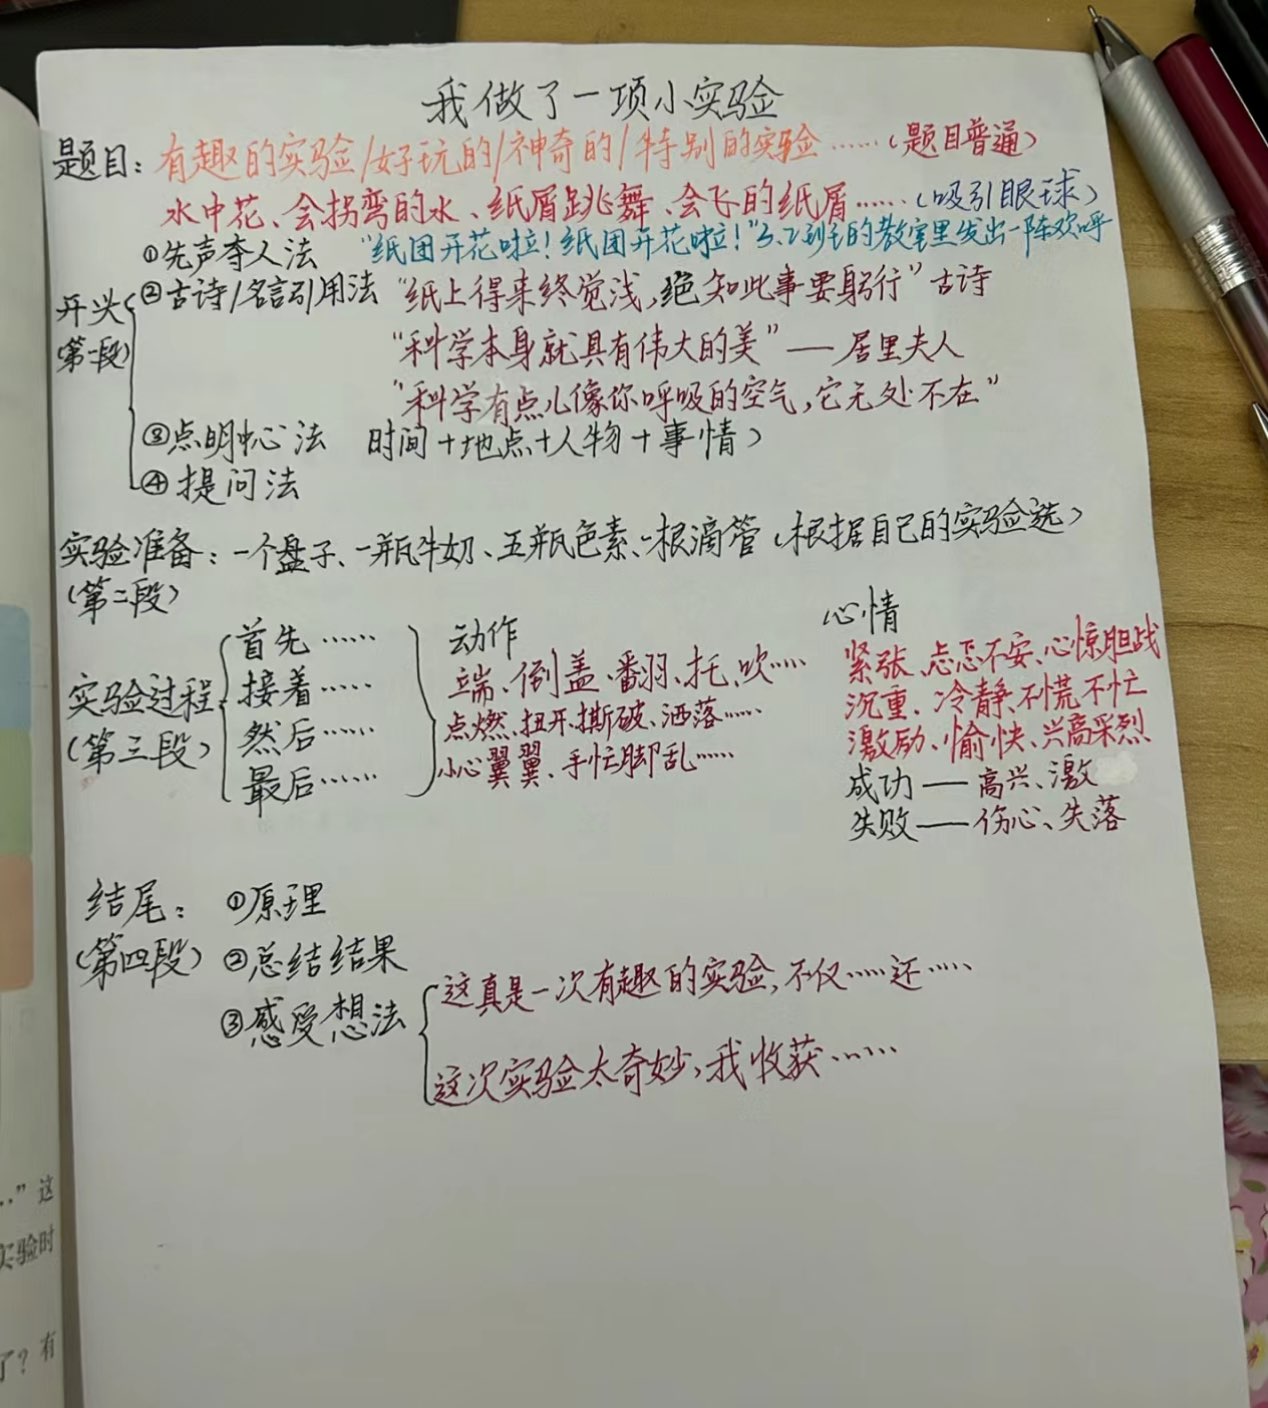 我做了一项小实验
题目：有趣的实验/好玩的/神奇的/特别的实验……（题目普通）
水中花、会拐弯的水、纸屑跳舞、会飞的纸屑……（吸引眼球）
①先声夺人法 “纸团开花啦！纸团开花啦！”的教室里发出一阵欢呼
②古诗/名言引用法 “纸上得来终觉浅，绝知此事要躬行”古诗
开头
（第一段）
“科学本身就具有伟大的美”——居里夫人
“科学有点儿像你呼吸的空气，它无处不在”
③点明中心法 时间＋地点＋人物＋事情）
④提问法
实验准备：一个盘子、一瓶牛奶、五瓶色素、一根滴管（根据自己的实验选）
（第二段）
实验过程
（第三段）
首先……
接着……
然后……
最后……
动作
端、倒盖、翻、托、吹……
点燃、扭开、撕破、洒落……
小心翼翼、手忙脚乱……
心情
紧张、忐忑不安、心惊胆战
沉重、冷静、不慌不忙
激励、愉快、兴高采烈
成功——高兴、激
失败——伤心、失落
结尾：
（第四段）
①原理
②总结结果
③感受想法
这真是一次有趣的实验，不仅……还……
这次实验太奇妙，我收获……
…”这
实验时
了？有